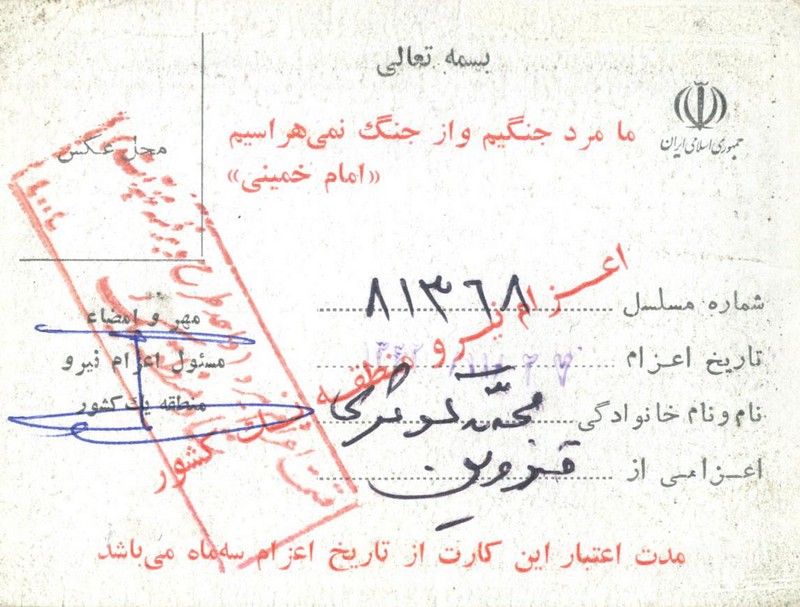 بسمه تعالی
جمهوری اسلامی ایران
ما مرد جنگیم و از جنگ نمی‌هراسیم
«امام خمینی»
محل عکس
شماره مسلسل ۸۱۳۶۸
تاریخ اعزام
نام و نام خانوادگی محمد
اعزامی از قزوین
مهر و امضاء
مسئول اعزام نیرو
منطقه یک کشور
اعزام نیرو منطقه یک کشور
مدت اعتبار این کارت از تاریخ اعزام سه‌ماه می‌باشد